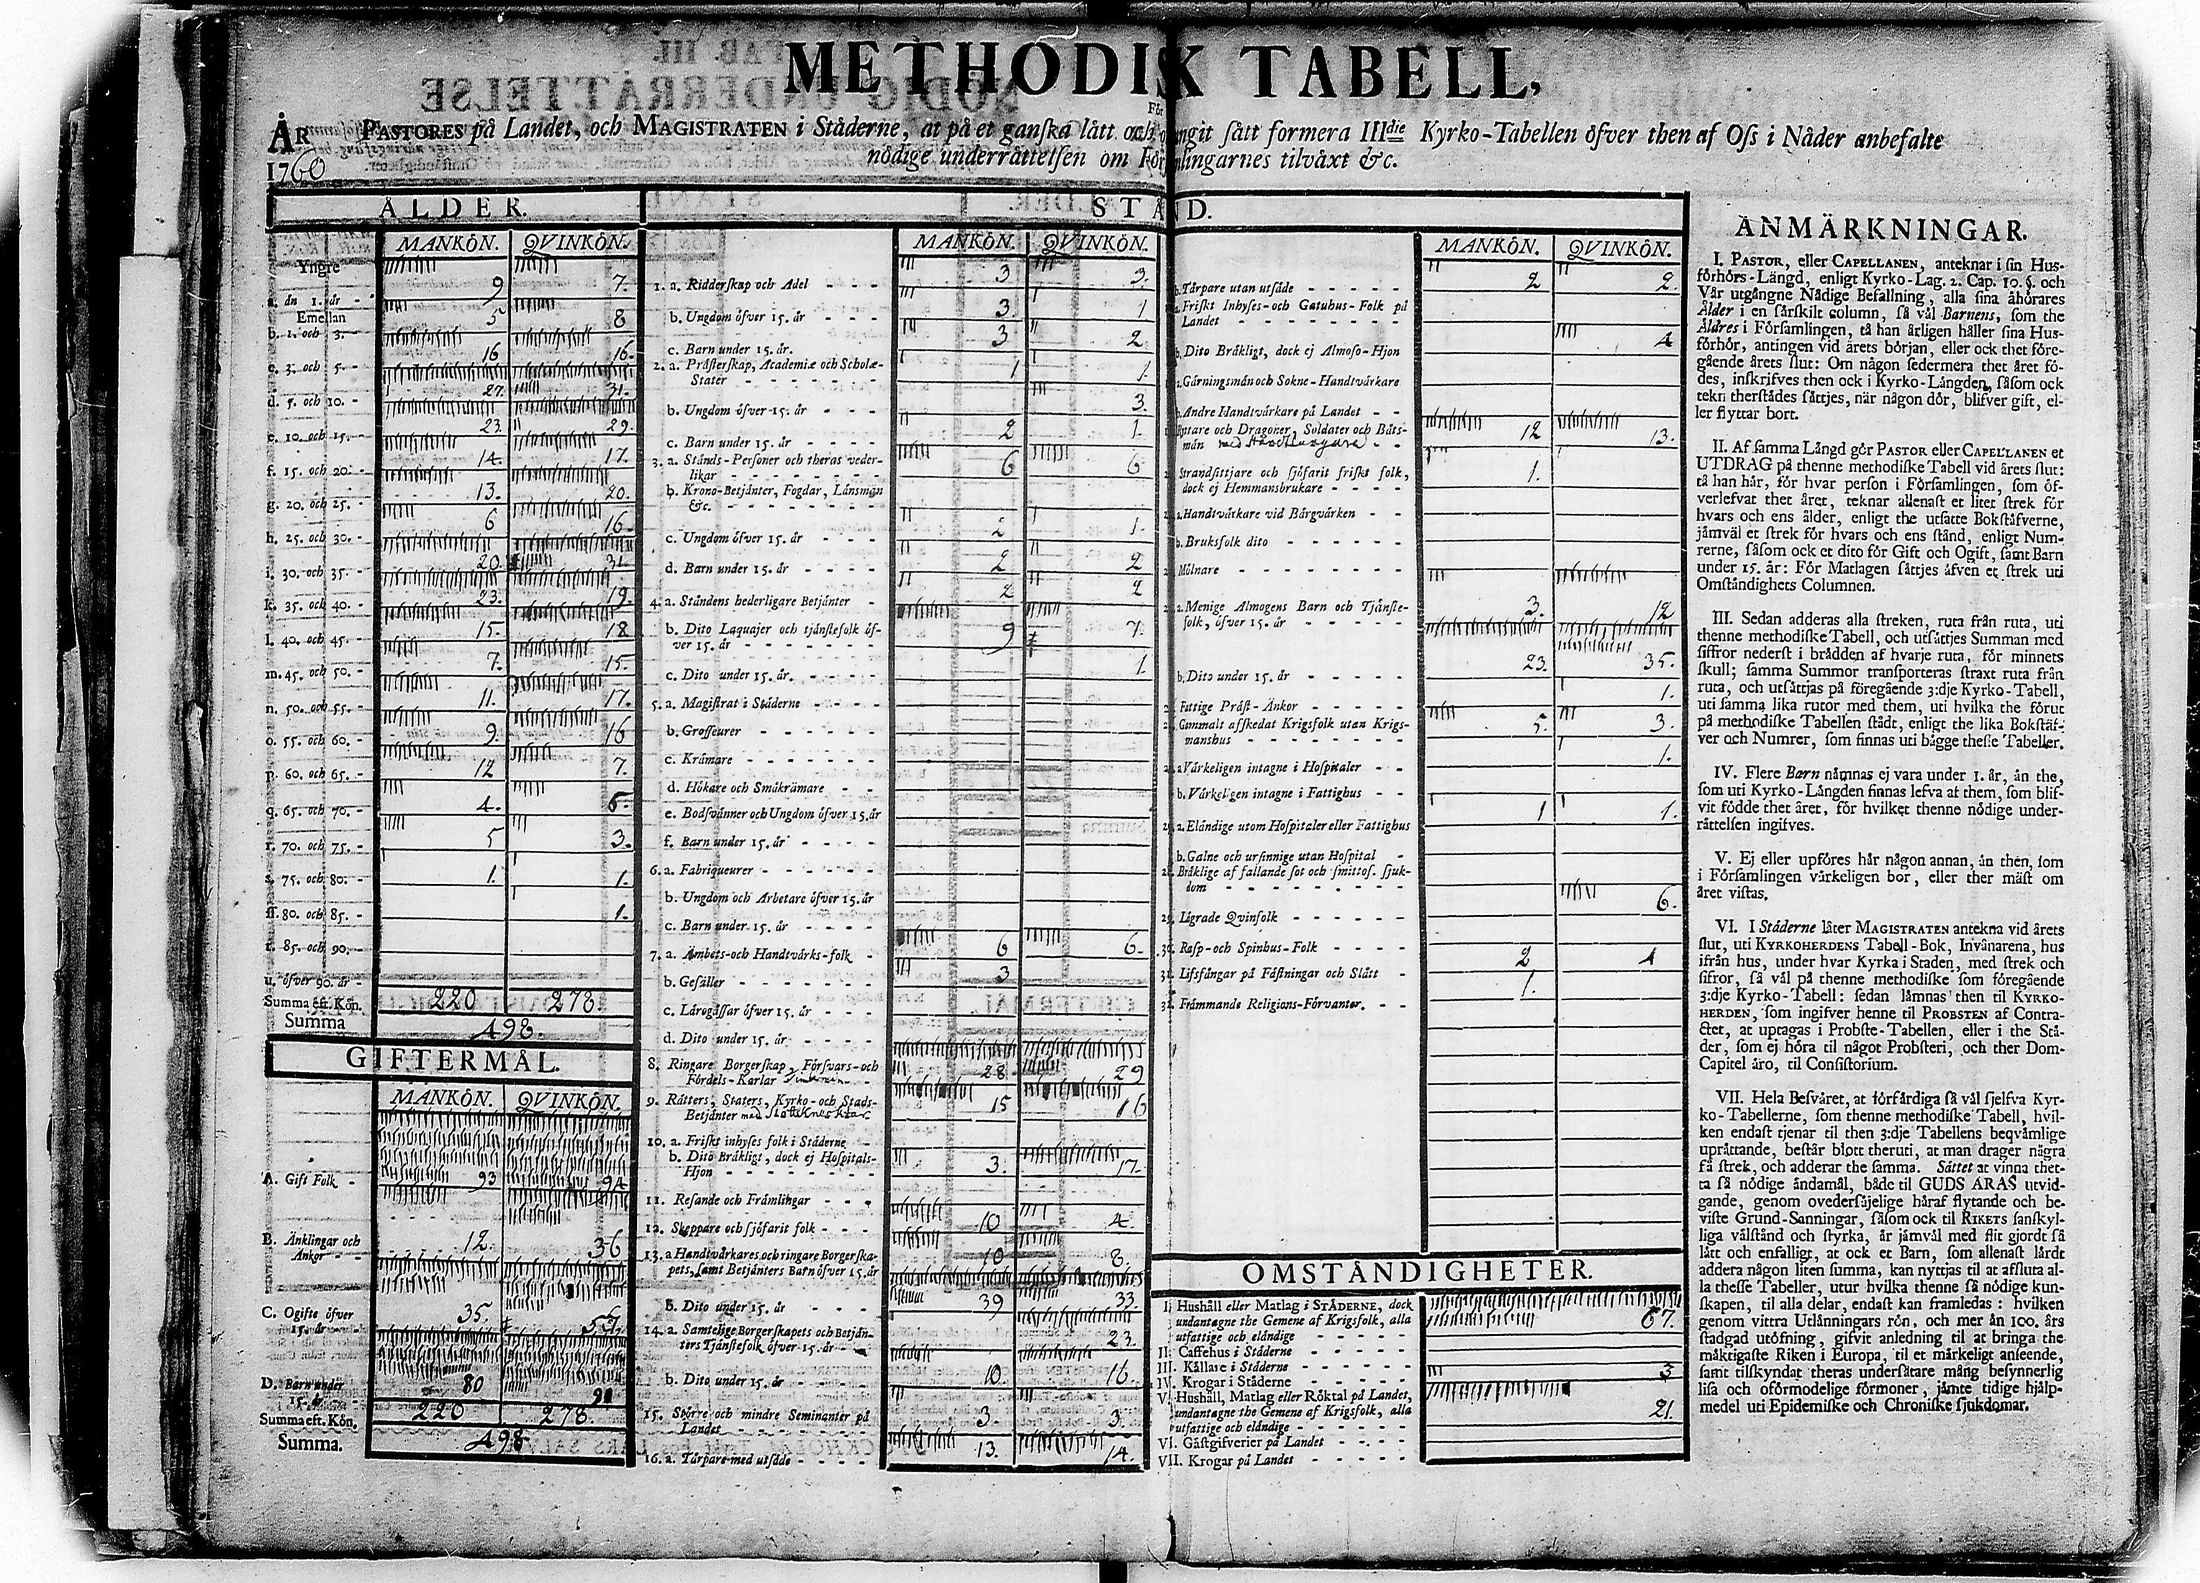 METHODISK TABELL,
För
ÅR PASTORES på Landet, och MAGISTRATEN i Städerne, at på et ganska lätt och ogement sätt formera IIIdie Kyrko-Tabellen öfver then af Oss i Nåder anbefalte
1760 nödige underrättelsen om Församlingarnes tilväxt &c.
ÅLDER.
MANKÖN. QVINKÖN.
Yngre
a. än 1. år - 9 7.
Emellan
b. 1. och 3. 5 8
c. 3. och 5. - 16 16.
d. 5. och 10. - 27. 31.
e. 10. och 15. - 23. 29.
f. 15. och 20. - 14. 17.
g. 20. och 25. - 13. 20.
h. 25. och 30. - 6 16.
i. 30. och 35. - 20. 31.
k. 35. och 40. - 23. 19.
l. 40. och 45. - 15. 18
m. 45. och 50. - 7. 15.
n. 50. och 55. - 11. 17.
o. 55. och 60. - 9. 16
p. 60. och 65. - 12 7.
q. 65. och 70. - 4. 6.
r. 70. och 75. - 5 3.
s. 75. och 80. - 1. 1.
ss. 80. och 85. - 1.
t. 85. och 90. -
u. öfver 90. år -
Summa eft. Kön. 220 278.
Summa 498.
GIFTERMÅL.
MANKÖN. QVINKÖN.
A. Gift Folk - 93 94
B. Änklingar och
Änkor - - 12. 36
C. Ogifte öfver
15. år - - 35.
D. Barn under
15. år - 80
Summa eft. Kön. 220 278.
Summa. 498.
STÅND.
MANKÖN. QVINKÖN.
1. a. Ridderskap och Adel - - - - 3 3.
b. Ungdom öfver 15. år - - - 3. 1
c. Barn under 15. år. 3 2.
2. a. Prästerskap, Academiæ och Scholæ-
Stater - - - - - - - 1 1.
b. Ungdom öfver 15. år - - - 3.
c. Barn under 15. år - - - - 2 1.
3. a. Stånds-Personer och theras veder-
likar - - - - - - - - 6 6
b. Krono-Betjänter, Fogdar, Länsmän
&c. - - - - - - - -
c. Ungdom öfver 15. år - - - 2 1.
d. Barn under 15. år - - - - 2 2
4. a. Ståndens hederligare Betjänter - 2 2
b. Dito Laquajer och tjänstefolk öf-
ver 15. år - - - - - - - 9 7.
c. Dito under 15. år. - - - - 1
5. a. Magistrat i Städerne - - - -
b. Grosseurer - - - - - - -
c. Krämare - - - - - - -
d. Hökare och Småkrämare - -
e. Bodsvänner och Ungdom öfver 15. år
f. Barn under 15. år - - - -
6. a. Fabriqueurer - - - - - -
b. Ungdom och Arbetare öfver 15. år
c. Barn under 15. år - - - -
7. a. Ämbets-och Handtvärks-folk - 6 6.
b. Gesäller - - - - - - - 3
c. Läregåssar öfver 15. år - - -
d. Dito under 15. år - - - -
8. Ringare Borgerskap, Försvars-och
Fördels-Karlar - - 28 29
9. Rätters, Staters, Kyrko-och Stads-
Betjänter med 15 16
10. a. Friskt inhyses folk i Städerne -
b. Dito Bräkligt, dock ej Hospitals-
Hjon - - - - - - - - 3. 17.
11. Resande och Främlingar - - -
12. Skeppare och sjöfarit folk - - - 10 4.
13. a Handtvärkares och ringare Borgerska-
pets, samt Betjänters Barn öfver 15. år 10 8.
b. Dito under 15. år - - - - 39 33.
14. a. Samtelige Borgerskapets och Betjän-
ters Tjänstefolk öfver 15. år - - 23.
b. Dito under 15. år - - - - 10. 16.
15. Större och mindre Seminanter på
Landet - - - - - - - 3. 3.
16. a. Tårpare med utsäde - - - - 13. 14.
MANKÖN. QVINKÖN.
b. Tårpare utan utsäde - - - - - 2 2.
Friskt Inhyses-och Gatuhus-Folk på
Landet - - - - - - - -
b. Dito Bräkligt, dock ej Almoso-Hjon 4
Gärningsmän och Sokne-Handtvärkare
b. Andre Handtvärkare på Landet - -
Ryttare och Dragoner, Soldater och Båts-
män med - - 12 13.
Strandsittjare och sjöfarit friskt folk,
dock ej Hemmansbrukare - - - - 1.
a. Handtvärkare vid Bärgvärken - -
b. Bruksfolk dito - - - - - -
Mölnare - - - - - - - -
a. Menige Almogens Barn och Tjänste-
folk, öfver 15. år - - - - - 3. 12
b. Dito under 15. år - - - - - 23. 35.
Fattige Präst-Änkor - - - - - 1.
Gammalt afskedat Krigsfolk utan Krigs-
manshus - - - - - - - - 5. 3.
a Värkeligen intagne i Hospitaler - - 1.
b. Värkeligen intagne i Fattighus - -
a. Eländige utom Hospitaler eller Fattighus 1 1.
b. Galne och ursinnige utan Hospital -
Bräklige af fallande sot och smittos. sjuk-
dom - - - - - - - - - 6.
29. Ligrade Qvinfolk - - - - - -
30. Rasp-och Spinhus-Folk - - - - 2 4
31. Lifsfångar på Fästningar och Slått - 1.
32. Främmande Religions-Förvanter. - -
OMSTÄNDIGHETER.
I. Hushåll eller Matlag i STÄDERNE, dock
undantagne the Gemene af Krigsfolk, alla
utfattige och eländige - - - - - 67.
II. Caffehus i Städerne - - - - -
III. Källare i Städerne - - - - -
IV. Krogar i Städerne - - - - - 3
V. Hushåll, Matlag eller Röktal på Landet,
undantagne the Gemene af Krigsfolk, alla
utfattige och eländige - - - - - 21.
VI. Gästgifverier på Landet - - - -
VII. Krogar på Landet - - - - -
ANMÄRKNINGAR.
I. PASTOR, eller CAPELLANEN, anteknar i sin Hus-
förhörs-Längd, enligt Kyrko-Lag. 2. Cap. 10. §. och
Vår utgångne Nådige Befallning, alla sina åhörares
Ålder i en särskilt column, så väl Barnens, som the
Äldres i Församlingen, tå han årligen håller sina Hus-
förhör, antingen vid årets början, eller ock thet före-
gående årets slut: Om någon sedermera thet året fö-
des, inskrifves then ock i Kyrko-Längden, såsom ock
tekn therstädes sättjes, när någon dör, blifver gift, el-
ler flyttar bort.
II. Af samma Längd gör PASTOR eller CAPELLANEN et
UTDRAG på thenne methodiske Tabell vid årets slut:
tå han här, för hvar person i Församlingen, som öf-
verlefvat thet året, teknar allenast et litet strek för
hvars och ens ålder, enligt the utsatte Bokstäfverne,
jämväl et strek för hvars och ens stånd, enligt Num-
rerne, såsom ock et dito för Gift och Ogift, samt Barn
under 15. år: För Matlagen sättjes äfven et strek uti
Omständighets Columnen.
III. Sedan adderas alla streken, ruta från ruta, uti
thenne methodiske Tabell, och utsättjes Summan med
siffror nederst i brädden af hvarje ruta, för minnets
skull; samma Summor transporteras straxt ruta från
ruta, och utsättjas på föregående 3:dje Kyrko-Tabell,
uti samma lika rutor med them, uti hvilka the förut
på methodiske Tabellen städt, enligt the lika Bokstäf-
ver och Numrer, som finnas uti bägge thesse Tabeller.
IV. Flere Barn nämnas ej vara under 1. år, än the,
som uti Kyrko-Längden finnas lefva af them, som blif-
vit födde thet året, för hvilket thenne nödige under-
rättelsen ingifves.
V. Ej eller upföres här någon annan, än then, som
i Församlingen värkeligen bor, eller ther mäst om
året vistas.
VI. I Städerne låter MAGISTRATEN antekna vid årets
slut, uti KYRKOHERDENS Tabell-Bok, Invånarena, hus
ifrån hus, under hvar Kyrka i Staden, med strek och
sifror, så väl på thenne methodiske som föregående
3:dje Kyrko-Tabell: sedan lämnas then til KYRKO-
HERDEN, som ingifver henne til PROBSTEN af Contra-
ctet, at uptagas i Probste-Tabellen, eller i the Stä-
der, som ej höra til något Probsteri, och ther Dom-
Capitel äro, til Consistorium.
VII. Hela Besväret, at förfärdiga så väl sjelfva Kyr-
ko-Tabellerne, som thenne methodiske Tabell, hvil-
ken endast tjenar til then 3:dje Tabellens beqvämlige
uprättande, består blott theruti, at man drager några
få strek, och adderar the samma. Sättet at vinna thet-
ta så nödige ändamål, både til GUDS ÄRAS utvid-
gande, genom ovedersäjelige häraf flytande och be-
viste Grund-Sanningar, såsom ock til RIKETS sanskyl-
liga välstånd och styrka, är jämväl med flit gjordt så
lätt och enfalligt, at ock et Barn, som allenast lärdt
addera någon liten summa, kan nyttjas til at afsluta al-
la thesse Tabeller, utur hvilka thenne så nödige kun-
skapen, til alla delar, endast kan framledas: hvilken
genom vittra Utlänningars rön, och mer än 100. års
stadgad utöfning, gifvit anledning til at bringa the
mäktigaste Riken i Europa, til et märkeligt anseende,
samt tilskyndat theras undersåtare mång besynnerlig
lisa och oförmodelige förmoner, jämte tidige hjälp-
medel uti Epidemiske och Chroniske sjukdomar.